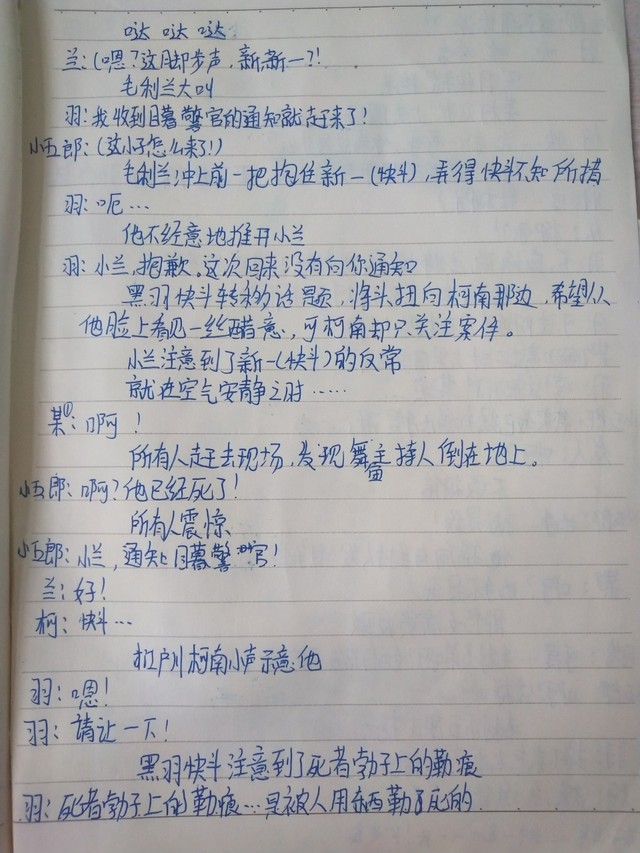 哒 哒 哒
兰:(嗯?这脚步声,新,新一?!
毛利兰大叫
羽:我收到目暮警官的通知就赶来了!
小五郎:(这小子怎么来了!)
毛利兰冲上前一把抱住新一(快斗),弄得快斗不知所措
羽:呃…
他不经意地推开小兰
羽:小兰,抱歉,这次回来没有向你通知
黑羽快斗转移话题,将头扭向柯南那边,希望从
他脸上看见一丝醋意,可柯南却只关注案件。
小兰注意到了新一(快斗)的反常
就在空气安静之时……
某①:啊!
所有人赶去现场,发现舞主持人倒在地上。
会
小五郎:啊?他已经死了!
所有人震惊
小五郎:小兰,通知目暮警官!
兰:好!
柯:快斗…
江户川柯南小声示意他
羽:嗯!
羽:請让一下!
黑羽快斗注意到了死者勃子上的勒痕
羽:死者勃子上的勒痕…是被人用东西勒死的